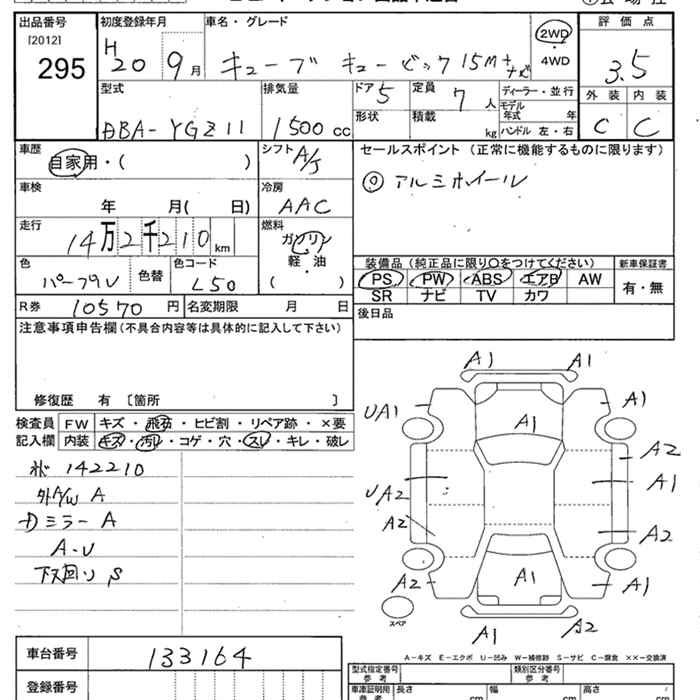 出品番号
[2012]
295
初度登録年月
H20 9月
車名・グレード
キューブ キュービック 15M+ナビ
2WD
・
4WD
評価点
3.5
外装 内装
C C
型式
DBA-YGZ11
排気量
1500cc
ドア
5
形状
定員
7人
積載
kg
ディーラー・並行
モデル年式 年
ハンドル 左・右
車歴
自家用・( )
シフト
A/S
車検
年 月( 日)
冷房
AAC
走行
14万2千210km
燃料
ガソリン
軽・油
( )
色
パープル
色替
色コード
L50
R券 10570円 名変期限 月 日
セールスポイント(正常に機能するものに限ります)
◎ アルミホイール
装備品(純正品に限り○をつけてください)
PS PW ABS エアB AW
SR ナビ TV カワ
新車保証書
有・無
後日品
注意事項申告欄(不具合内容等は具体的に記入して下さい)
修復歴 有 〔箇所 〕
検査員
記入欄
FW キズ・飛石・ヒビ割・リペア跡・×要
内装 キズ・汚レ・コゲ・穴・スレ・キレ・破レ
142210
外A/W A
ミラー A
A・U
下回り S
A1 A1
UA1 A1 A1
A2
UA2 A1
A2 A2
A2 A1 A1
スペア
A1 A2
A-キズ E-エクボ U-凹み W-補修跡 S-サビ C-腐食 ××-交換済
車台番号 133164
登録番号
型式指定番号
参考
類別区分番号
参考
車庫証明用
参考
長さ cm 幅 cm 高さ cm